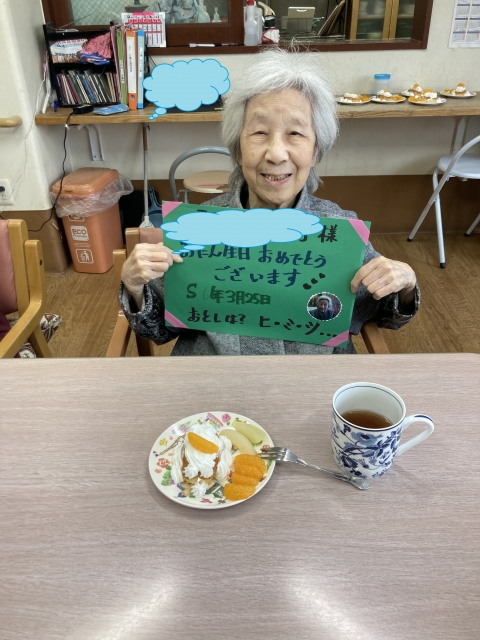 様
おたん生日 おめでとう
ございます
S 年3月25日
おとしは? ヒ・ミ・ツ...
ECO